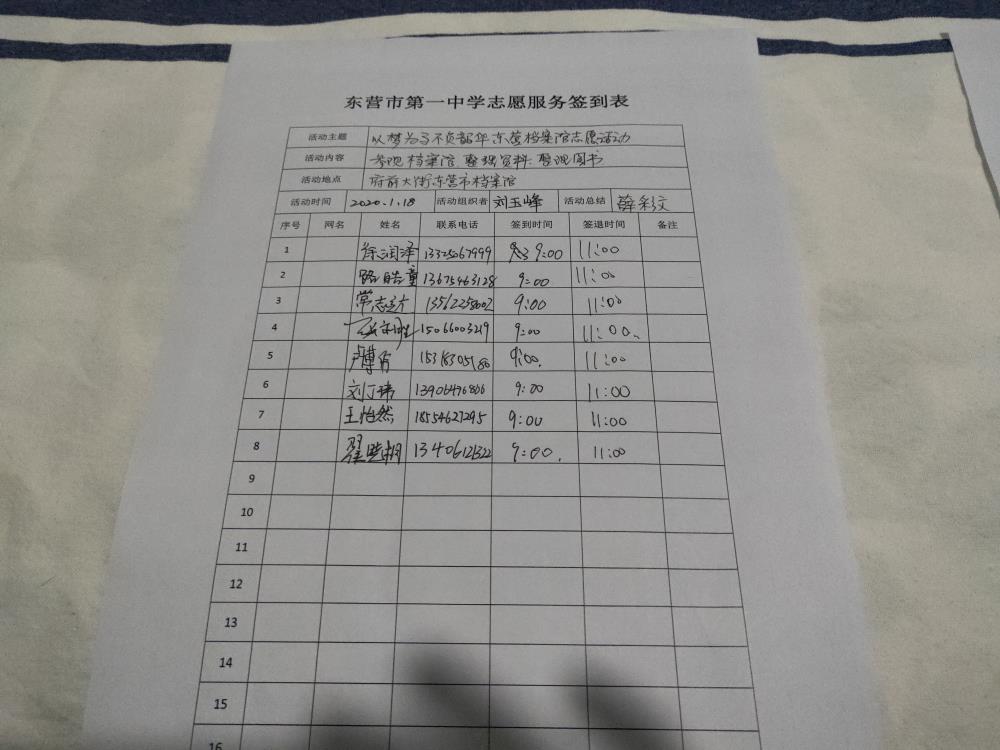 东营市第一中学志愿服务签到表
活动主题 以梦为马不负韶华东营档案馆志愿活动
活动内容 参观档案馆 整理资料 整理图书
活动地点 府前大街东营市档案馆
活动时间 2020.1.18 活动组织者 刘玉峰 活动总结 薛彩文
序号 网名 姓名 联系电话 签到时间 签退时间 备注
1 徐润泽 13325067999 9:00 11:00
2 路皓童 13675463128 9:00 11:00
3 常志 9:00 11:00
4 15066003219 9:00 11:00
5 卢博 9:00 11:00
6 刘丁玮 13906476806 9:00 11:00
7 王怡然 18554627295 9:00 11:00
8 翟 13406121322 9:00 11:00
9
10
11
12
13
14
15
16